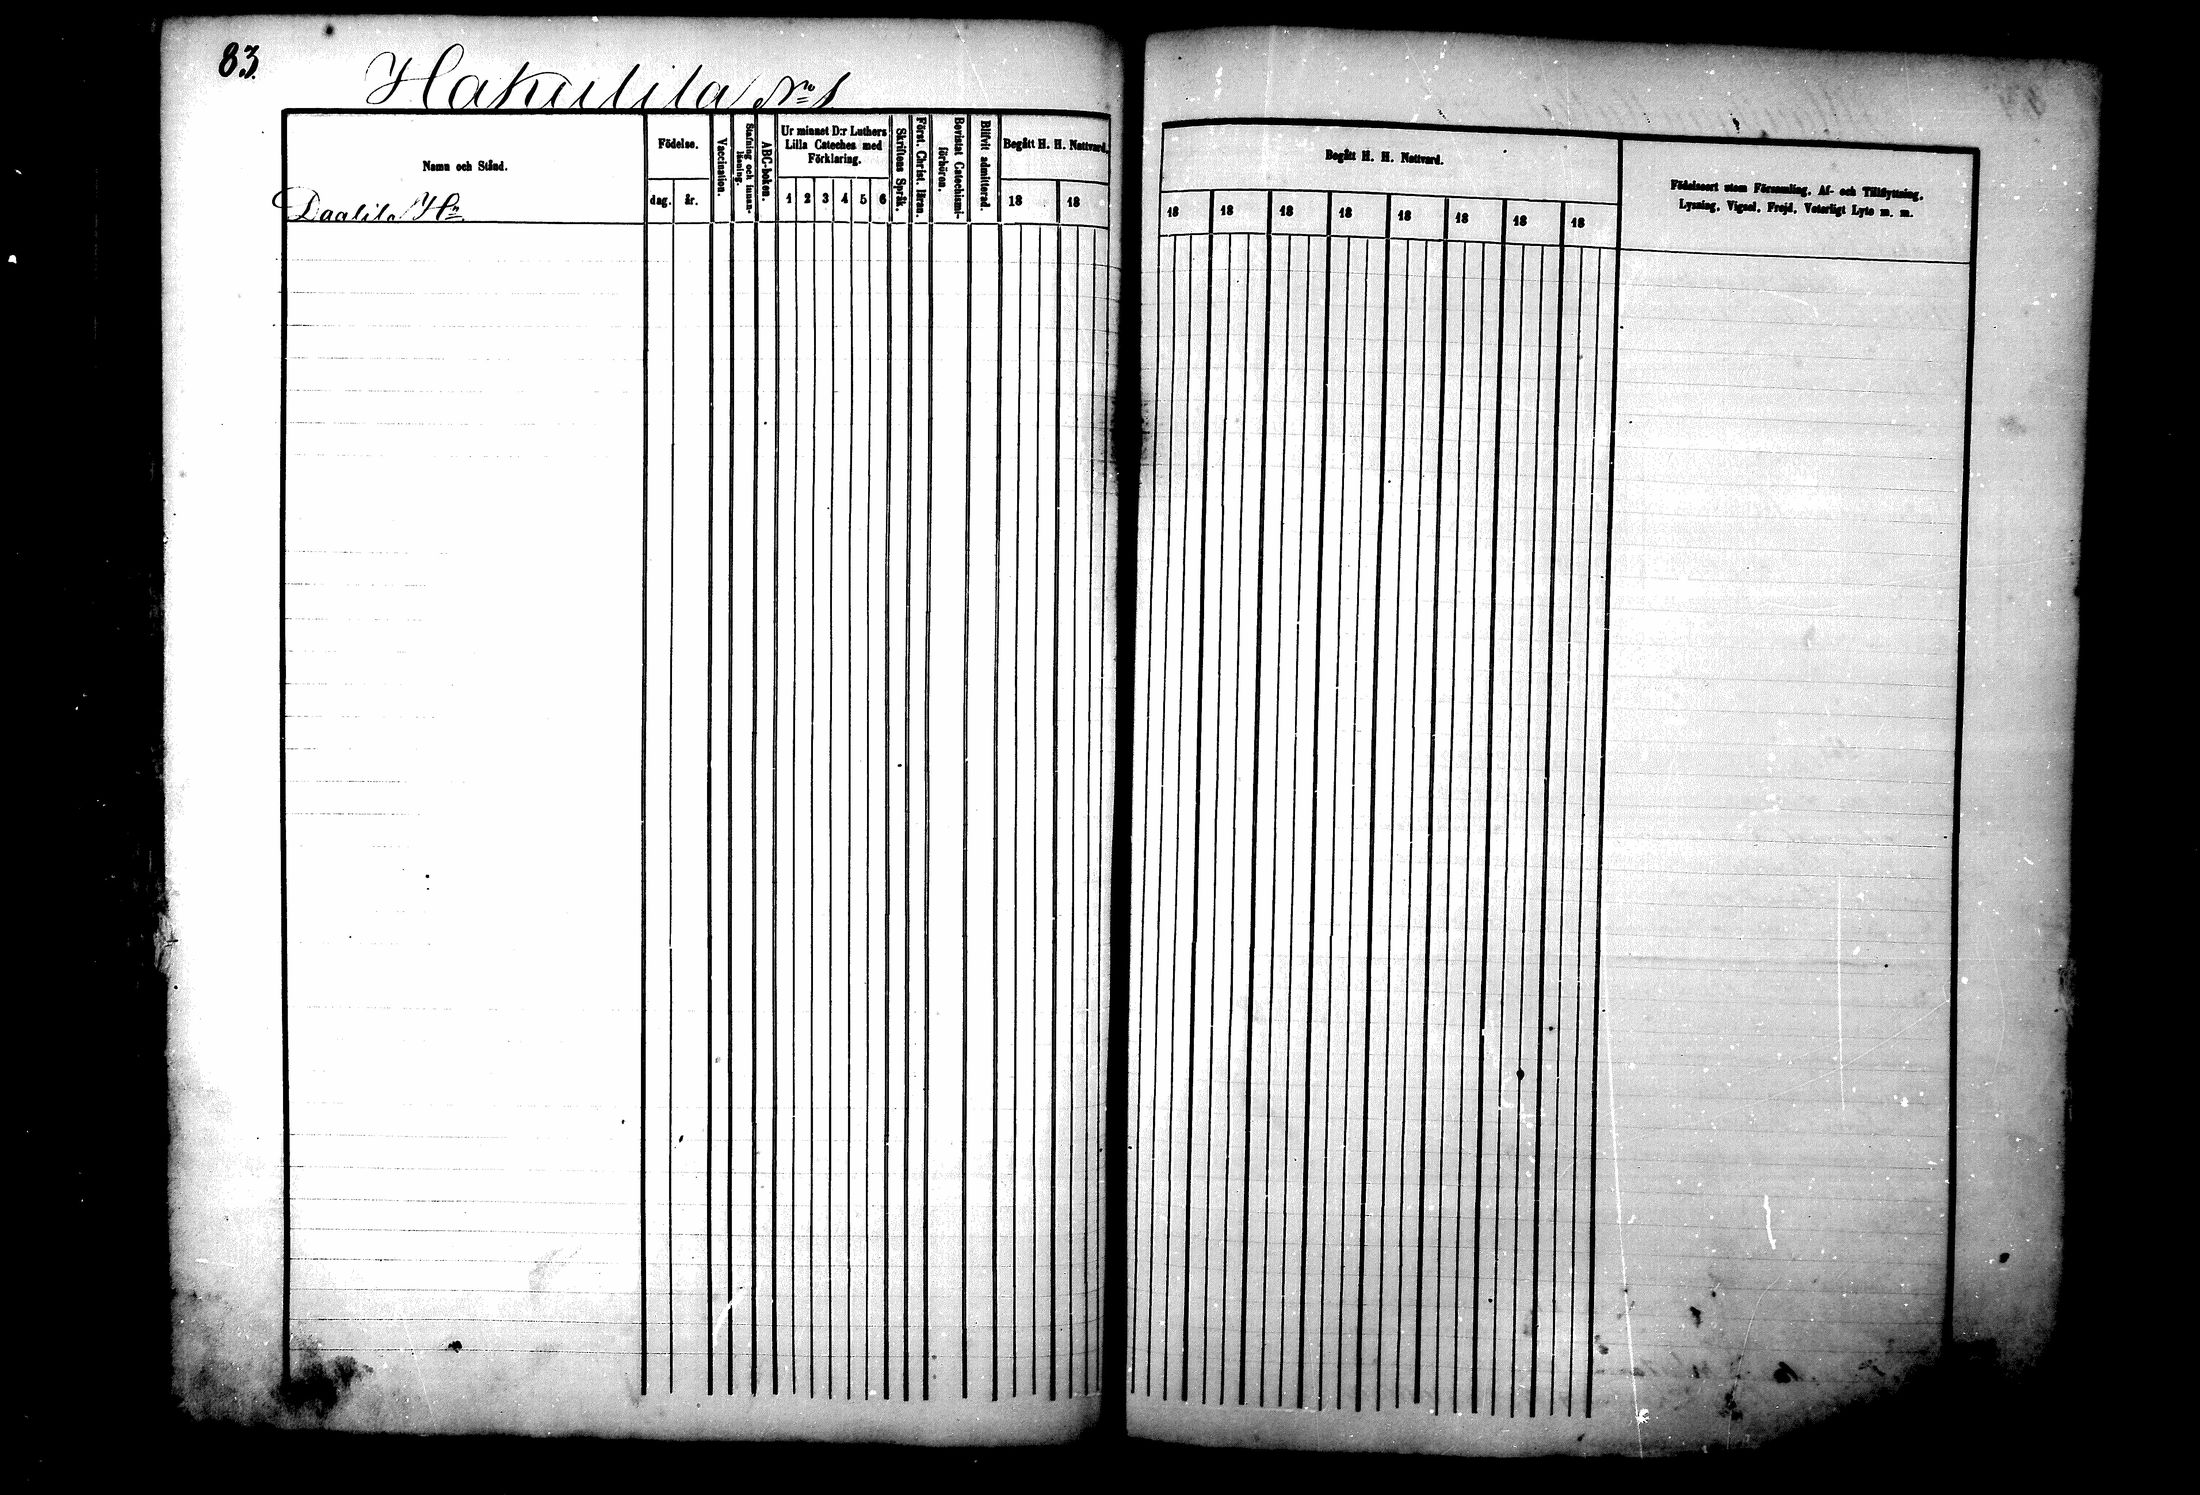 83.
Hakulila No 1
Namn och Stånd.
Daalila Hn.
Födelse.
dag. år.
Vaccination.
Stafning och innan-
läsning.
ABC-boken.
Ur minnet D:r Luthers
Lilla Cateches med
Förklaring.
1 2 3 4 5 6
Skriftens Språk.
Först. Christ. läran.
Bevistat Catechismi-
förhören.
Blifvit admitterad.
Begått H. H. Nattvard.
18 18
Begått H. H. Nattvard.
18 18 18 18 18 18 18 18
Födelseort utom Församling, Af- och Tillflyttning,
Lysning, Vigsel, Frejd, Veterligt Lyte m. m.